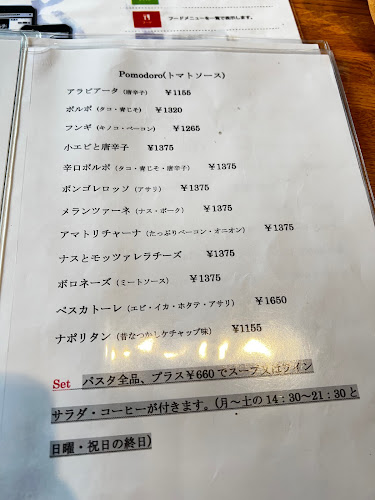 フードメニューを一覧で表示します。
Pomodoro(トマトソース)
アラビアータ (唐辛子) ￥1155
ポルポ (タコ・青じそ) ￥1320
フンギ (キノコ・ベーコン) ￥1265
小エビと唐辛子 ￥1375
辛口ポルポ (タコ・青じそ・唐辛子) ￥1375
ボンゴレロッソ (アサリ) ￥1375
メランツァーネ (ナス・ポーク) ￥1375
アマトリチャーナ (たっぷりベーコン・オニオン) ￥1375
ナスとモッツァレラチーズ ￥1375
ボロネーズ (ミートソース) ￥1375
ペスカトーレ (エビ・イカ・ホタテ・アサリ) ￥1650
ナポリタン (昔なつかしケチャップ味) ￥1155
Set パスタ全品、プラス￥660でスープ又はライン
サラダ・コーヒーが付きます。(月～土の14：30～21：30と
日曜・祝日の終日)